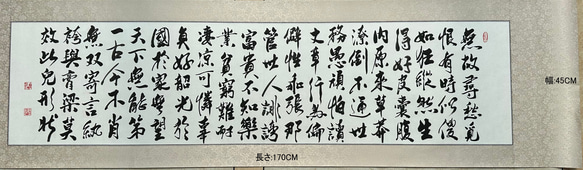 無故尋愁覓
恨有時似傻
如狂縱然生
得好皮囊腹
內原來草莽
潦倒不通世
務愚頑怕讀
文章行為偏
僻性乖張那
管世人誹謗
富貴不知樂
業貧窮難耐
淒涼可憐辜
負好韶光於
國於家無望
天下無能第
一古今不肖
無雙寄言紈
袴與膏粱莫
效此兒形狀
幅:45CM
長さ:170CM